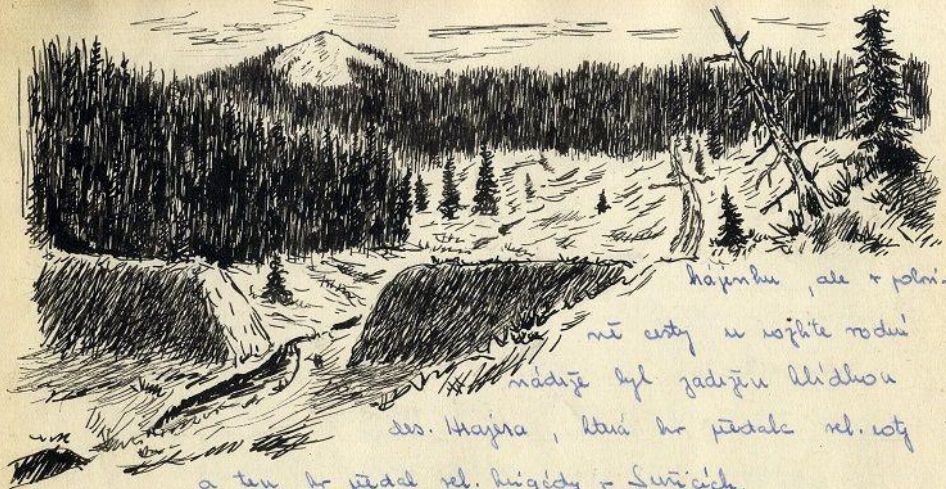 hájenku, ale v polovi-
ně cesty u vzjhlíte vodní
nádrže byl zadržen hlídkou
des. Krajera, která ho předala vel. roty
a ten ho předal vel. brigády v Sušicích.